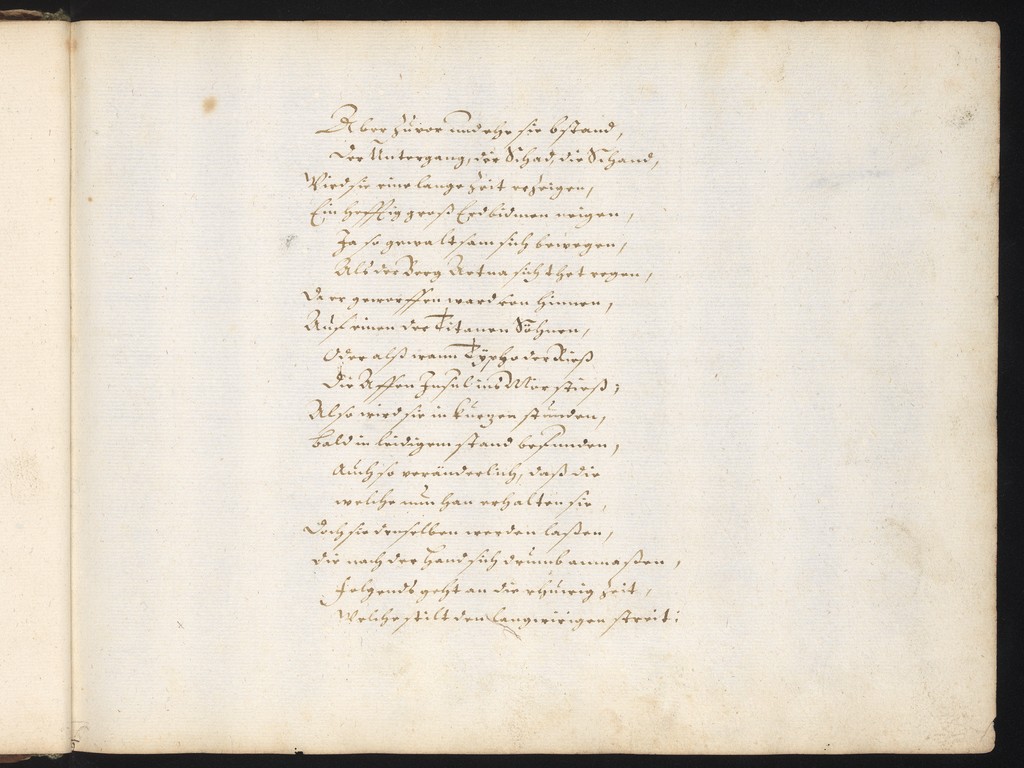 Aber zuvor und ehe sie bstand,
Der Untergang, der Schad, die Schand,
Wird sie eine lange Zeit erzeigen,
Ein hefftig groß Erdbidmen eigen,
Ja so gewaltsam sich bewegen,
Als der Berg Aetna sich thet regen,
Da er geworffen ward von hinnen,
Auf einen der Titanen Söhnen,
Oder alß wann Typho der Rieß
Die Affen Insul ins Mör stieß;
Also wird sie in kurtzen stunden,
Bald in leidigem stand befunden,
Auch so veränderlich, daß die
welche nun han erhalten sie,
Doch sie denselben werden laßen,
die nach der Hand sich drumb anmaßen,
Folgends geht an die rhuwig Zeit,
Welche stilt den langwirigen streit;